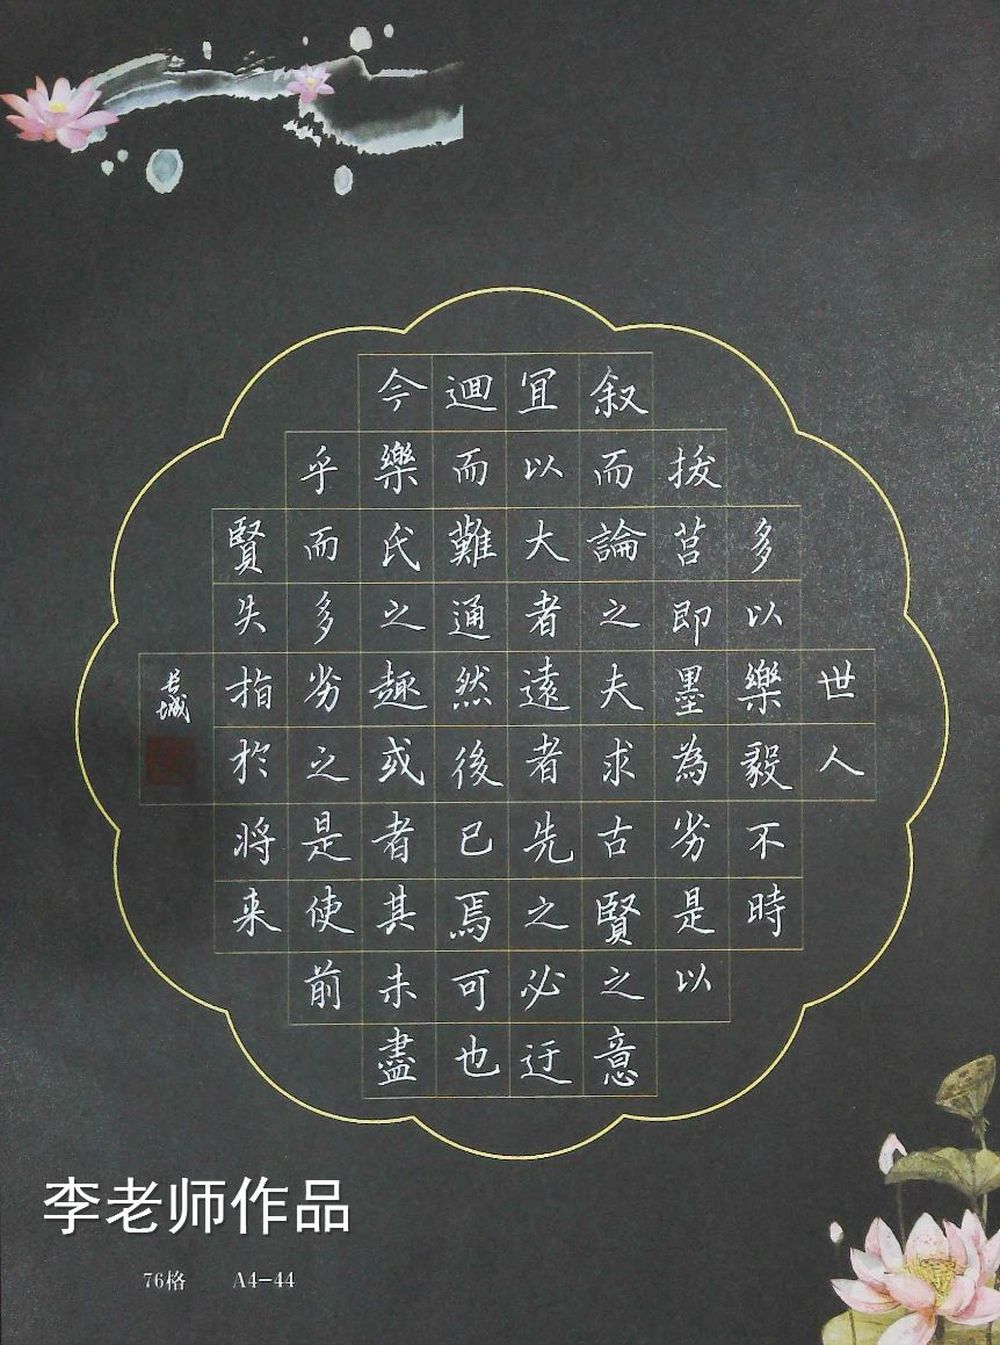 世人
多以樂毅不時
拔莒即墨為劣是以
叙而論之夫求古賢之意
宜以大者遠者先之必迂
迴而難通然後已焉可也
今樂氏之趣或者其未盡
乎而多劣之是使前
賢失指於將来
長城
李老师作品
76格 A4-44